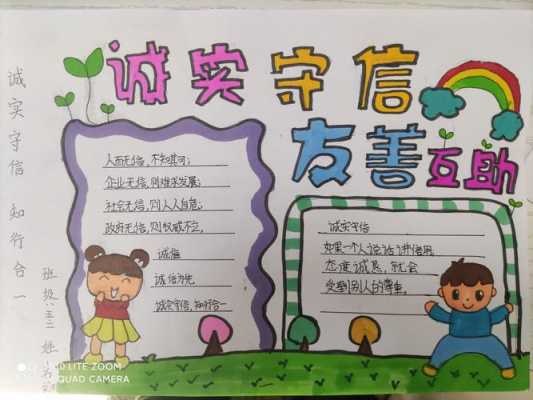 诚实守信
友善互助
诚实守信 知行合一
人而无信，不知其可；
企业无信，则难求发展；
社会无信，则人人自危；
政府无信，则权威不立。
诚信
诚信为先
诚实守信，知行合一
诚实守信
如果一个人说话讲信用
态度诚恳，就会
受到别人的尊重。
班级
姓名
LITE ZOOM
QUAD CAMERA